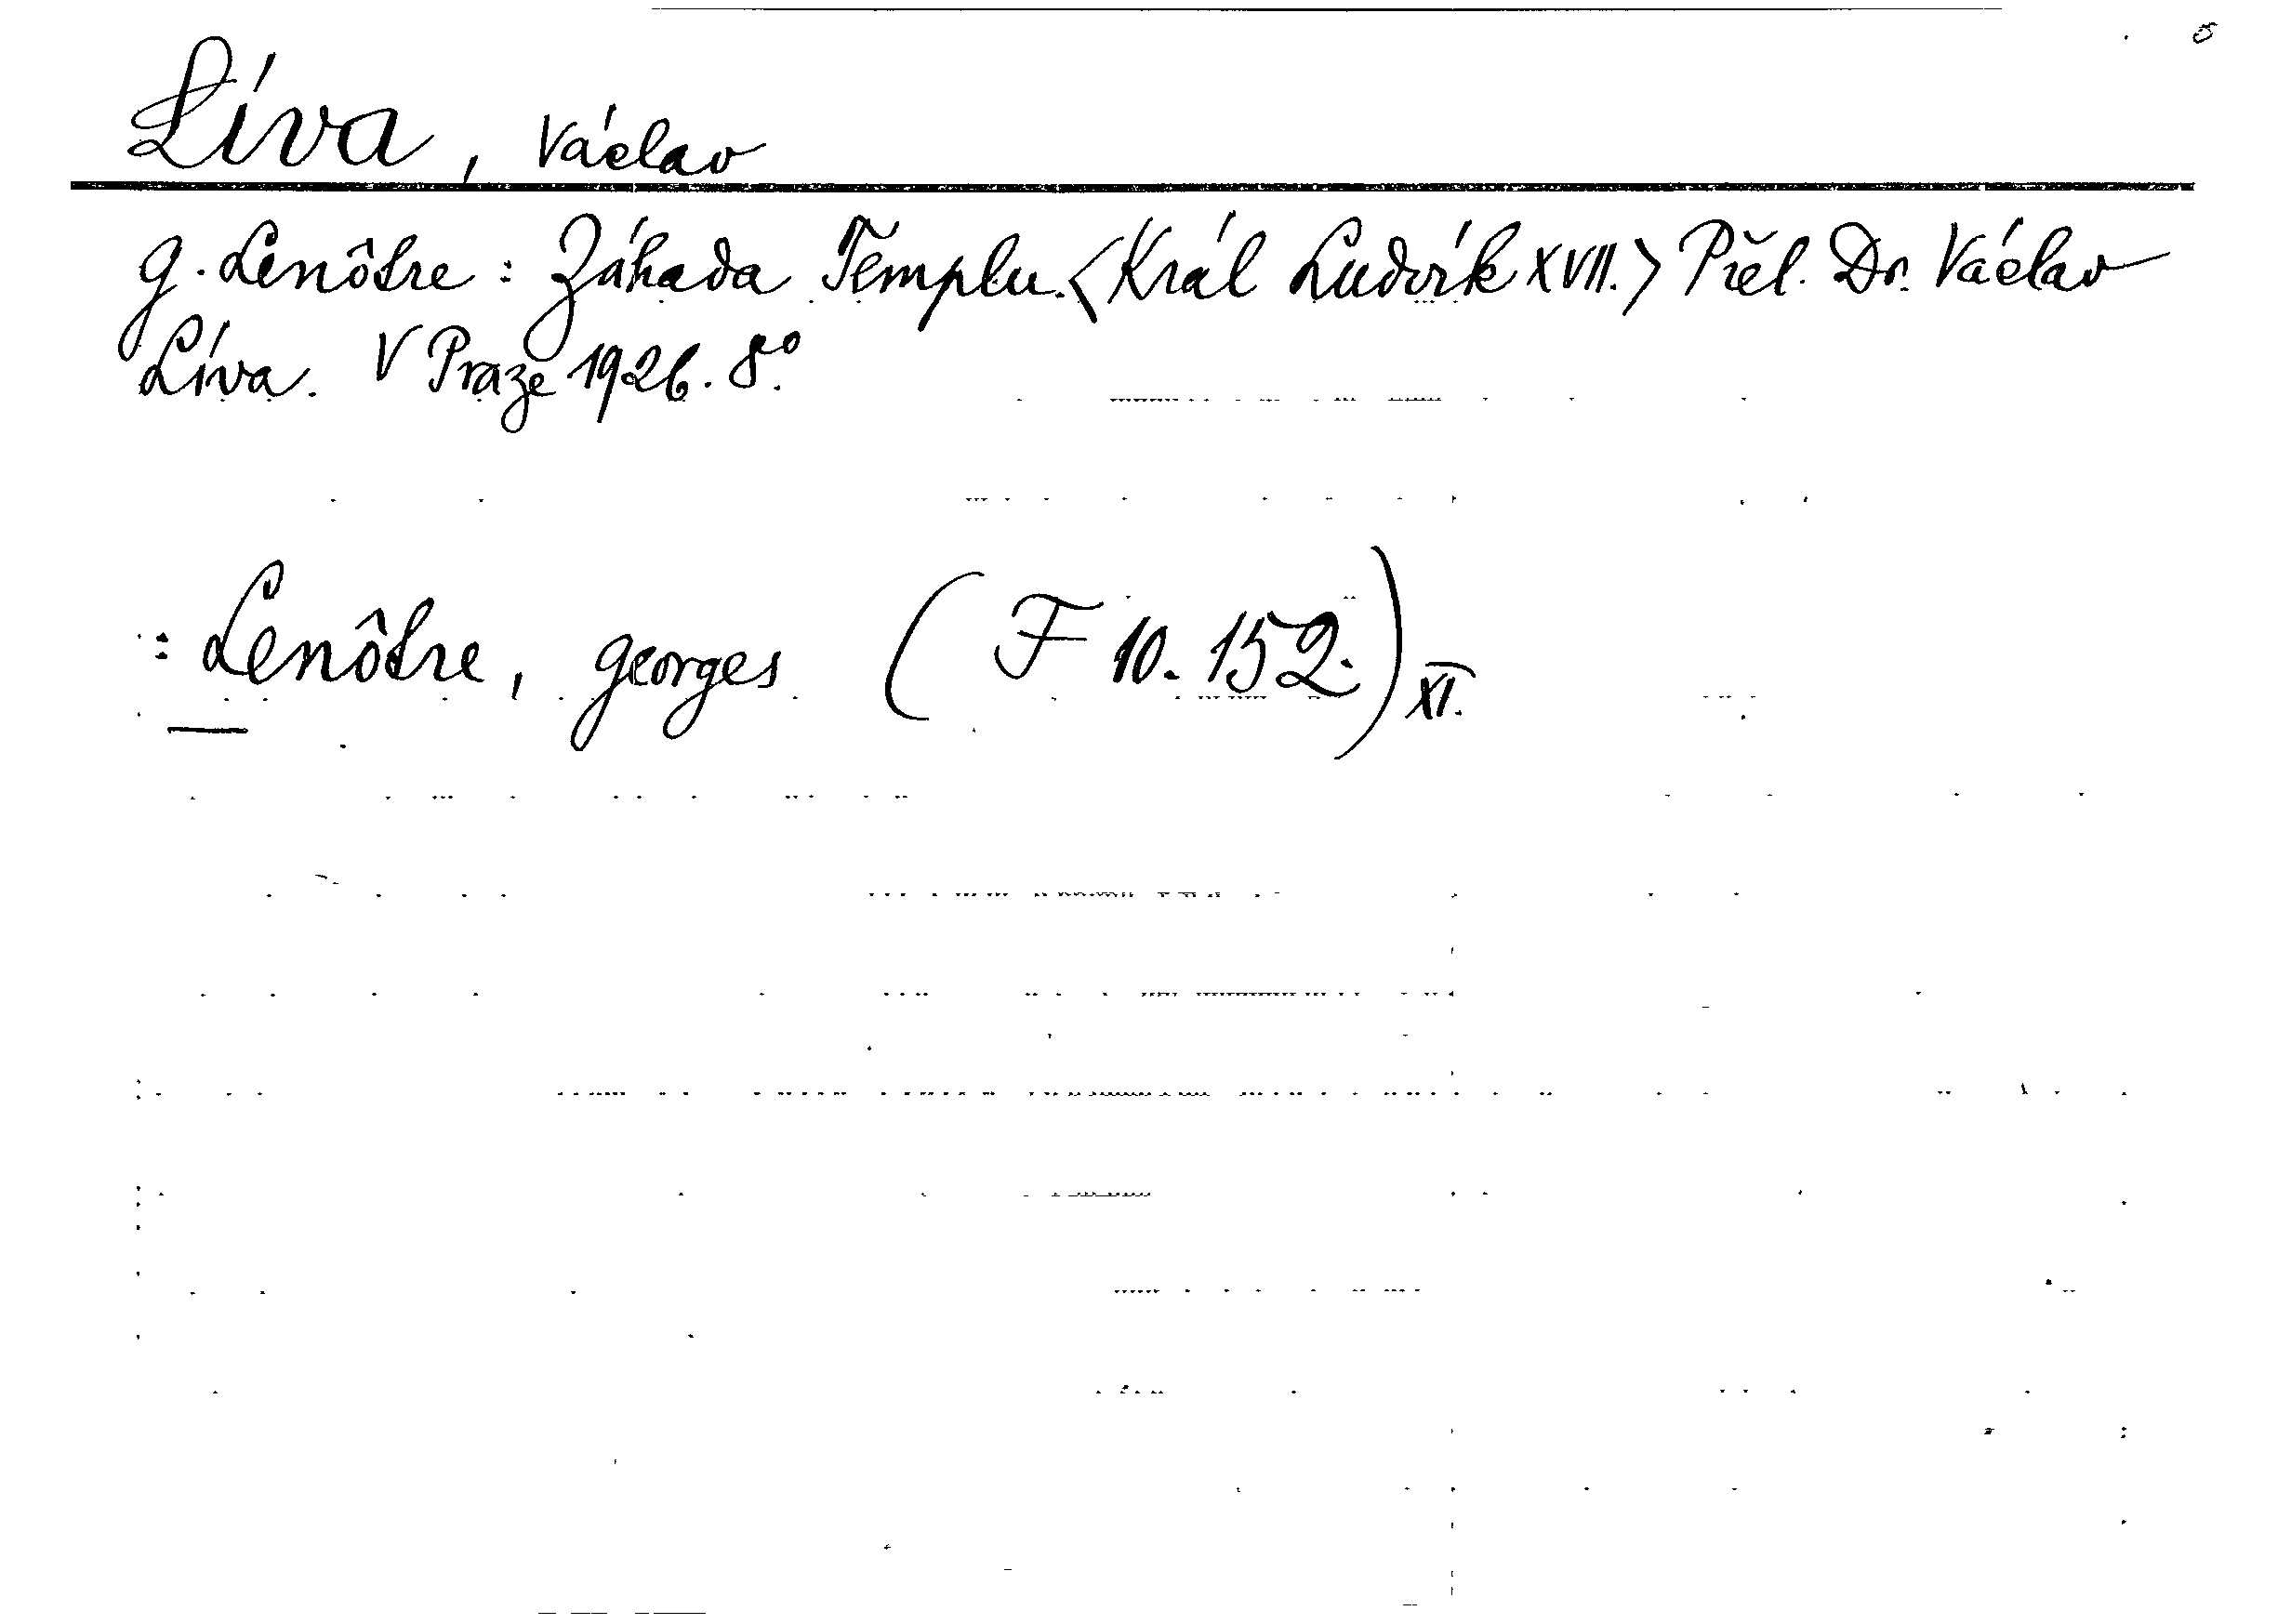 5
Líva, Václav
G. Lenôtre: Záhada Templu. <Král Ludvík XVII.> Přel. Dr. Václav
Líva. V Praze 1926. 8°.
: Lenôtre, Georges (F 10. 152.) XI.